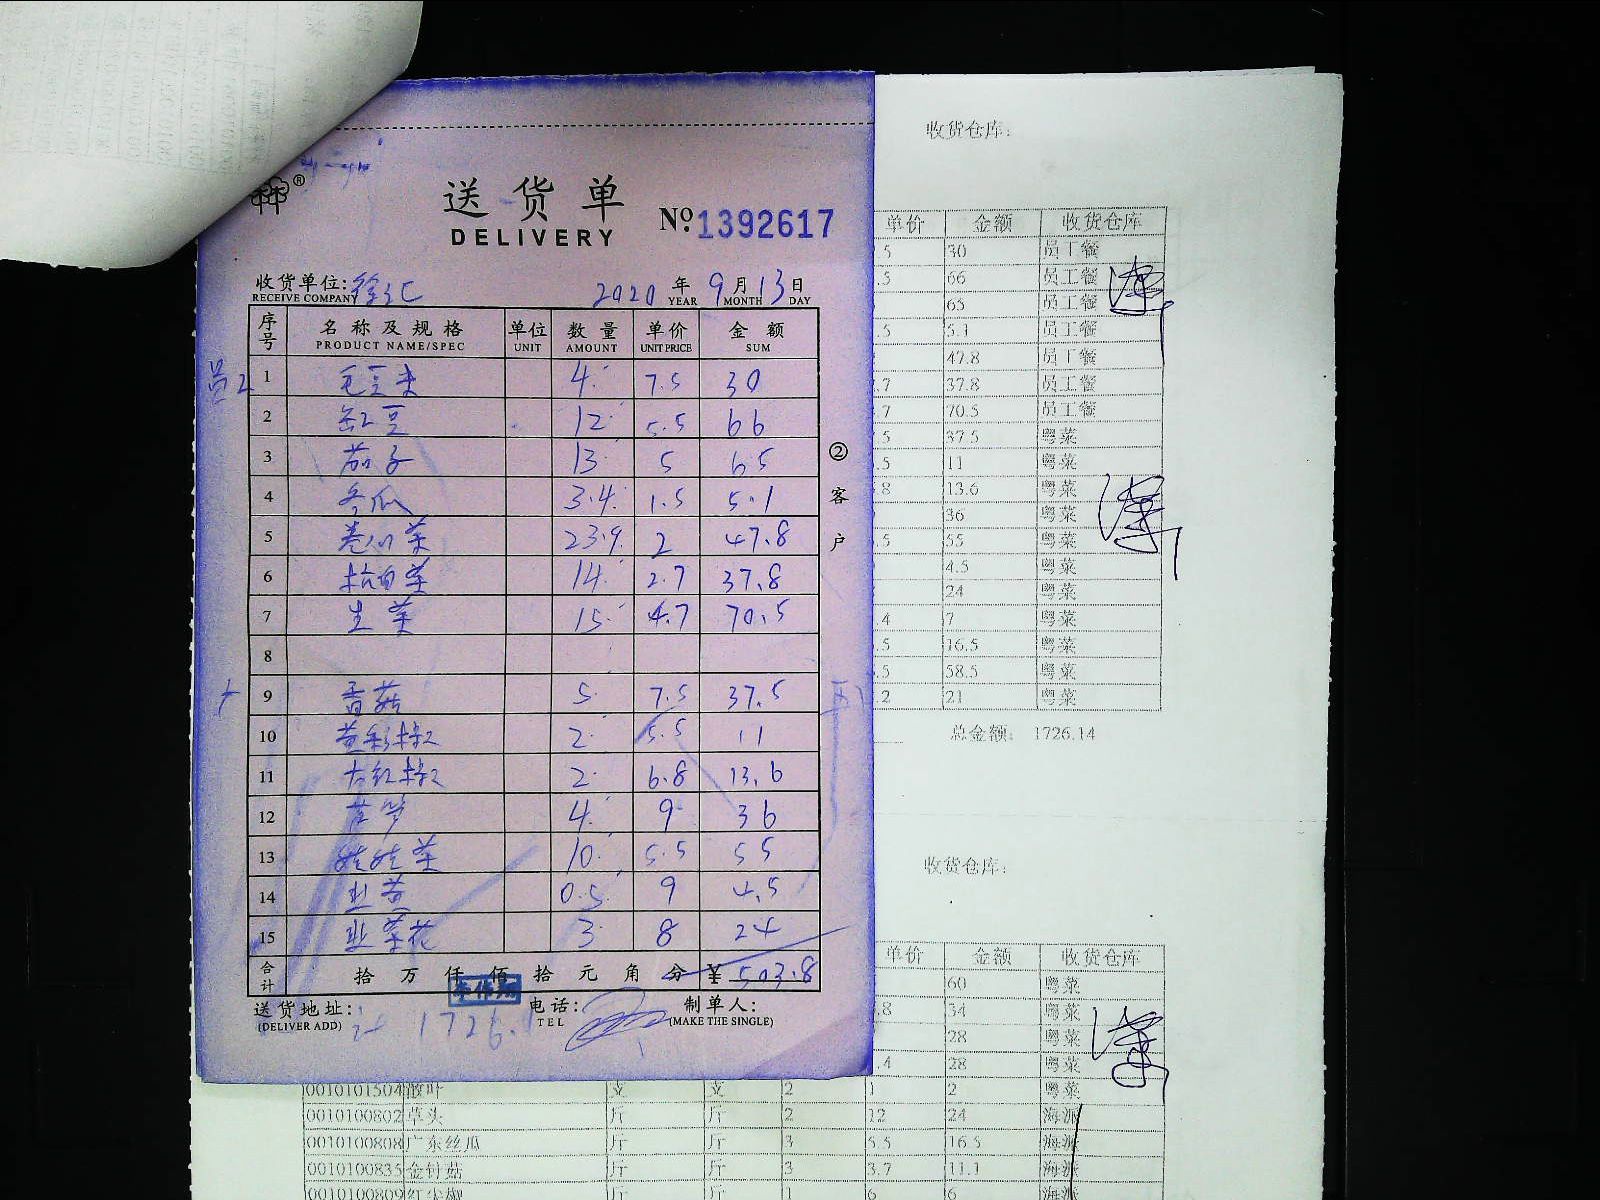 送货单
DELIVERY
№: 1392617
收货单位: 徐汇 2020 年 9 月 13 日
RECEIVE COMPANY YEAR MONTH DAY
序号 名称及规格 单位 数量 单价 金额
PRODUCT NAME/SPEC UNIT AMOUNT UNIT PRICE SUM
员工 1 毛豆米 4 7.5 30
2 缸豆 12 5.5 66
3 茄子 13 5 65
4 冬瓜 3.4 1.5 5.1
5 卷心菜 23.9 2 47.8
6 杭白菜 14 2.7 37.8
7 生菜 15 4.7 70.5
8
9 香菇 5 7.5 37.5
10 黄彩椒 2 5.5 11
11 大红椒 2 6.8 13.6
12 芦笋 4 9 36
13 娃娃菜 10 5.5 55
14 韭黄 0.5 9 4.5
15 韭菜花 3 8 24
合计 拾 万 仟 佰 拾 元 角 分 ¥ 503.8
送货地址: 电话: 制单人:
(DELIVER ADD) TEL (MAKE THE SINGLE)
1726.1
② 客户
收货仓库:
单价 金额 收货仓库
5 30 员工餐
.5 66 员工餐
65 员工餐
.5 5.1 员工餐
47.8 员工餐
.7 37.8 员工餐
.7 70.5 员工餐
5 37.5 粤菜
.5 11 粤菜
8 13.6 粤菜
36 粤菜
.5 55 粤菜
4.5 粤菜
24 粤菜
4 7 粤菜
.5 16.5 粤菜
.5 58.5 粤菜
.2 21 粤菜
总金额: 1726.14
收货仓库:
单价 金额 收货仓库
60 粤菜
.8 54 粤菜
28 粤菜
.4 28 粤菜
0010101504 散叶 支 支 2 1 2 粤菜
0010100802 草头 斤 斤 2 12 24 海派
0010100808 广东丝瓜 斤 斤 3 5.5 16.5 海派
0010100835 金针菇 斤 斤 3 3.7 11.1 海派
0010100809 红尖椒 斤 斤 1 6 6 海派